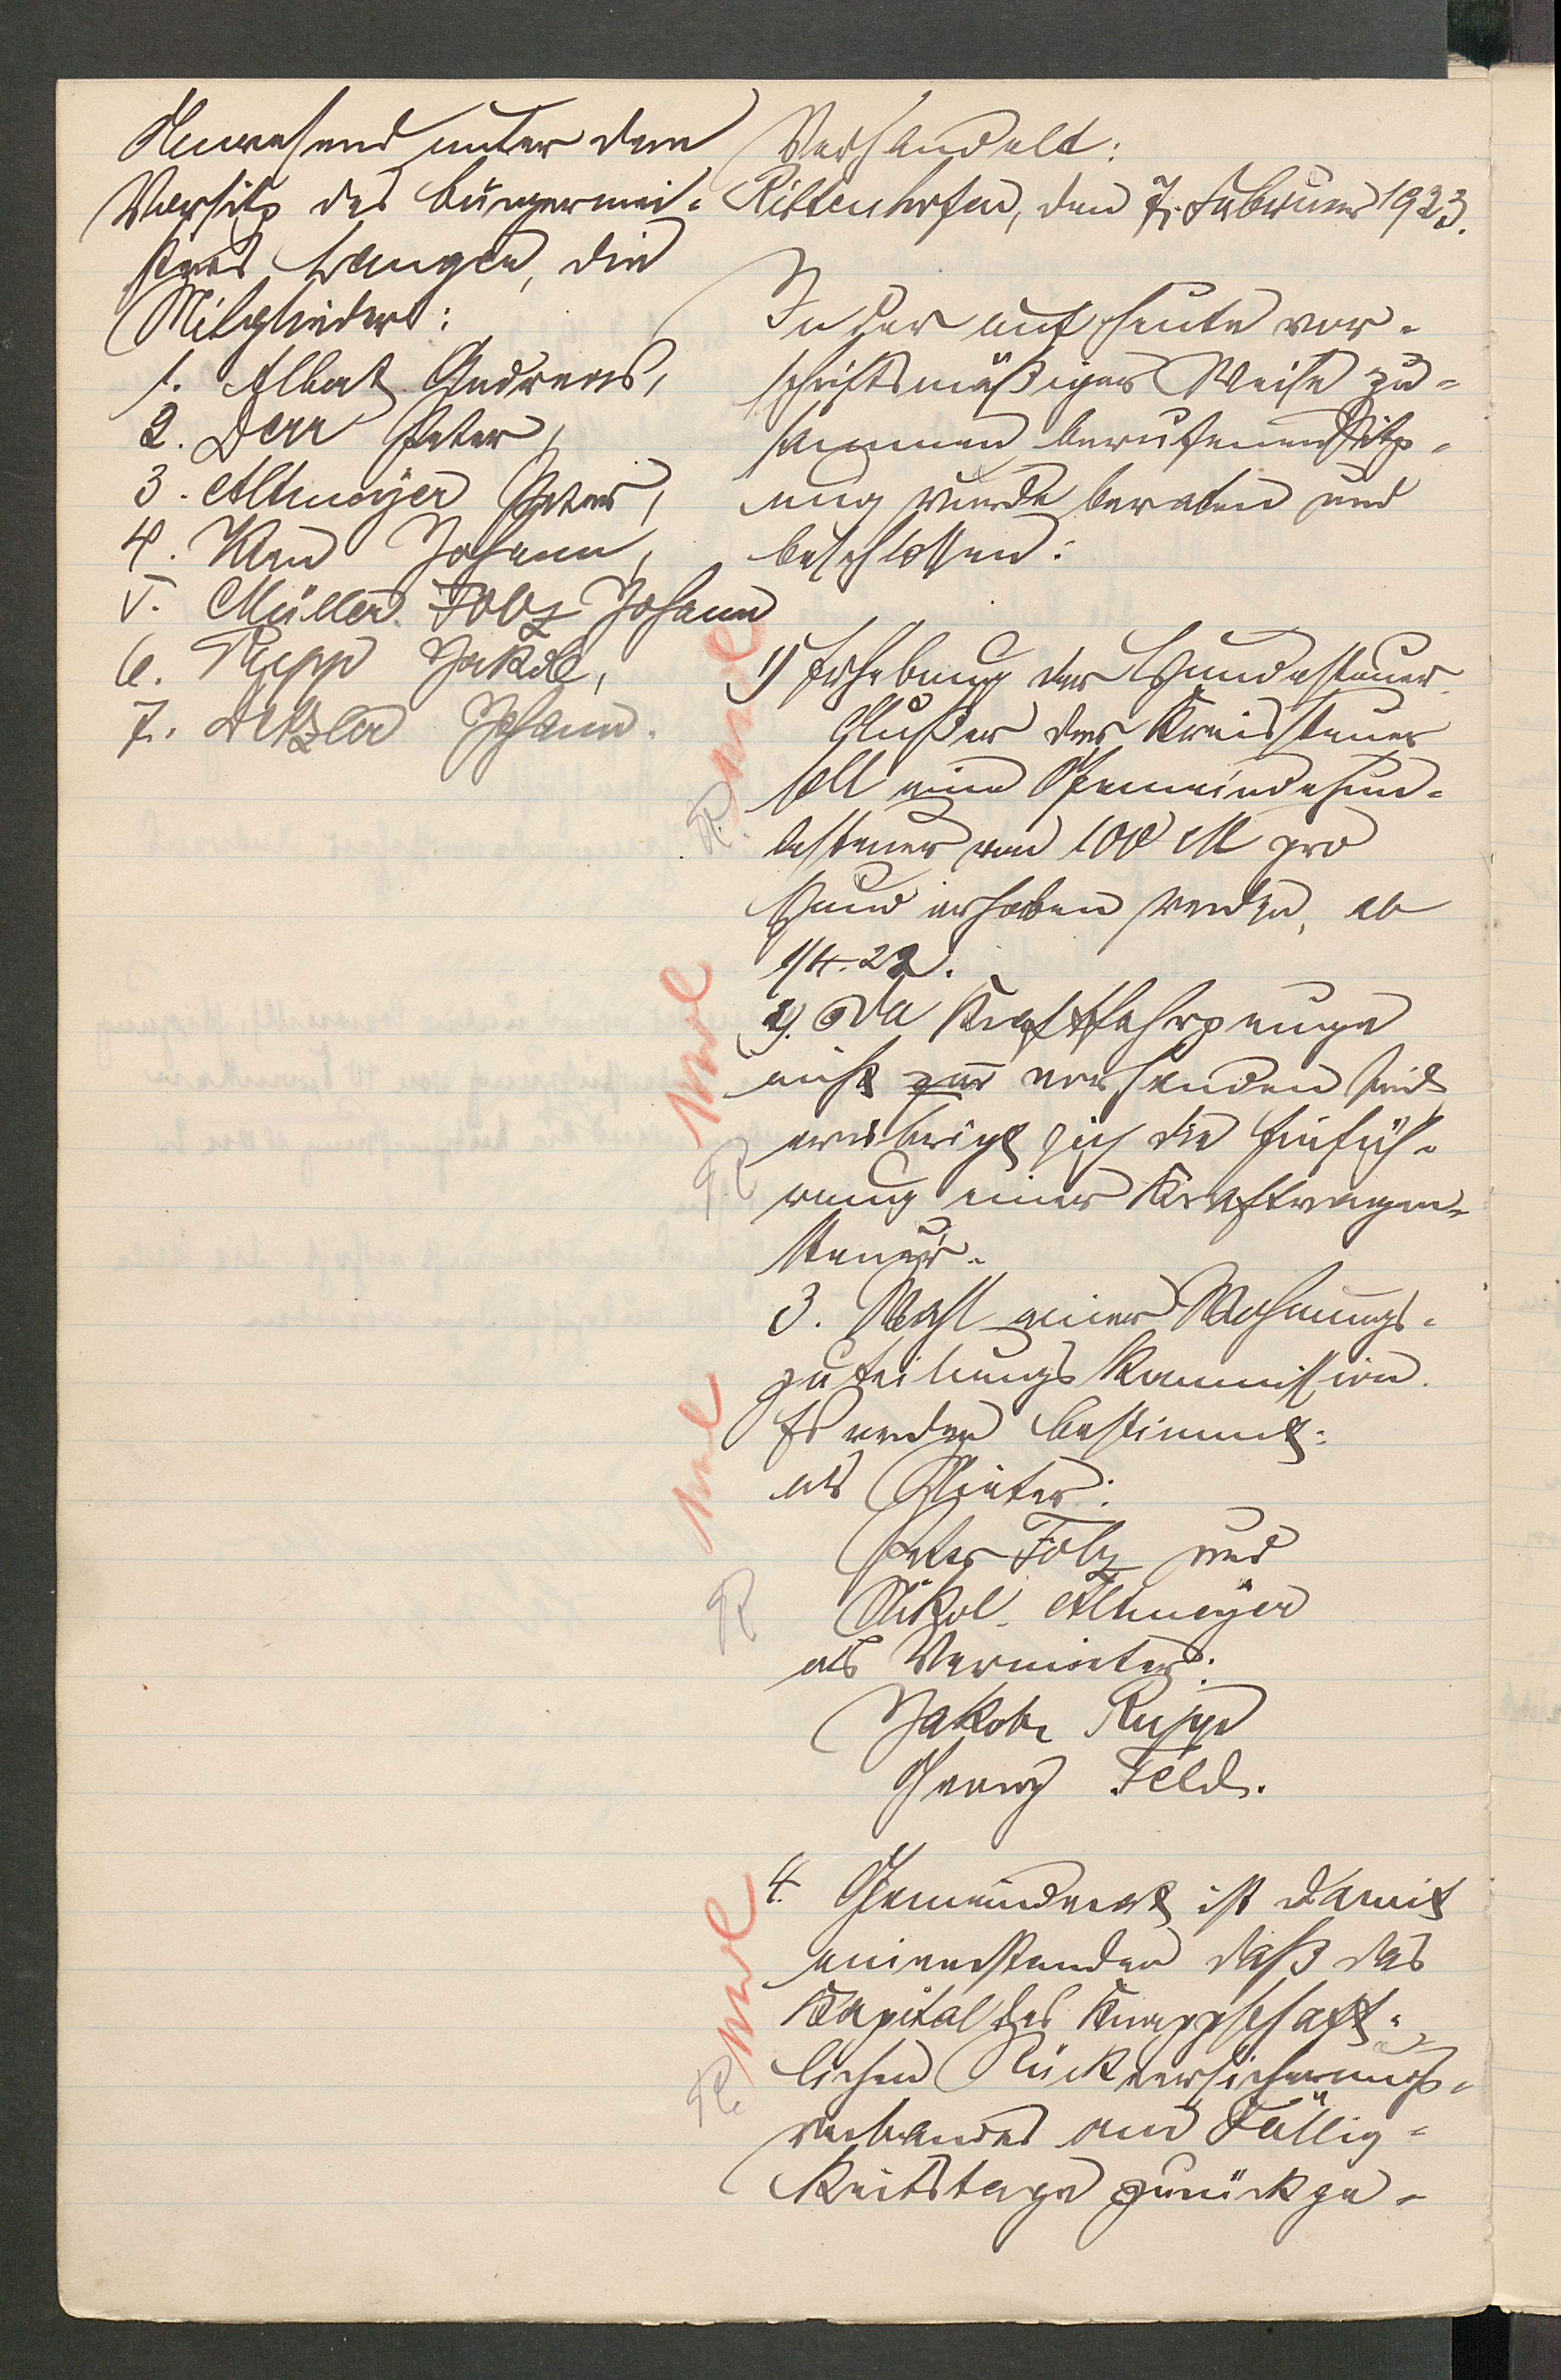 Anwesend unter dem
Vorsitz des Bürgermei-
sters Wangen, die
Mitglieder:
1. Albert Andreas,
2. Dörr Peter,
3. Altmeyer Peter,
4. Johann,
5. Müller Folz Johann
6. Rupp Jakob,
7. Detzler Johann.
Verhandelt:
Rittenhofen, den 7. Februar 1923.
In der auf heute vor-
schriftsmäßiger Weise zu-
sammen berufenen Sitz-
ung wurde beraten und
beschlossen:
1) Erhebung der Hundesteuer.
Außer der Kreissteuer
soll eine Gemeindehun-
desteuer von 100 M pro
Hund erhoben werden, ab
1/4.22.
2). Da Kraftfahrzeuge
nicht zur vorhanden sind
erübrigt sich die Einfüh-
rung einer Kraftwagen-
steuer.
3. Wahl einer Wohnungs-
zuteilungs Kommission.
Es werden bestimmt:
als Mieter:
Peter Folz und
Nikol. Altmeyer
als Vermieter:
Jakob Rupp
Georg Feld.
4. Gemeinderat ist damit
einverstanden daß das
Kapital des Knappschaft-
lichen Rückversicherungs-
verbandes am Fällig-
keitstage zurückge-